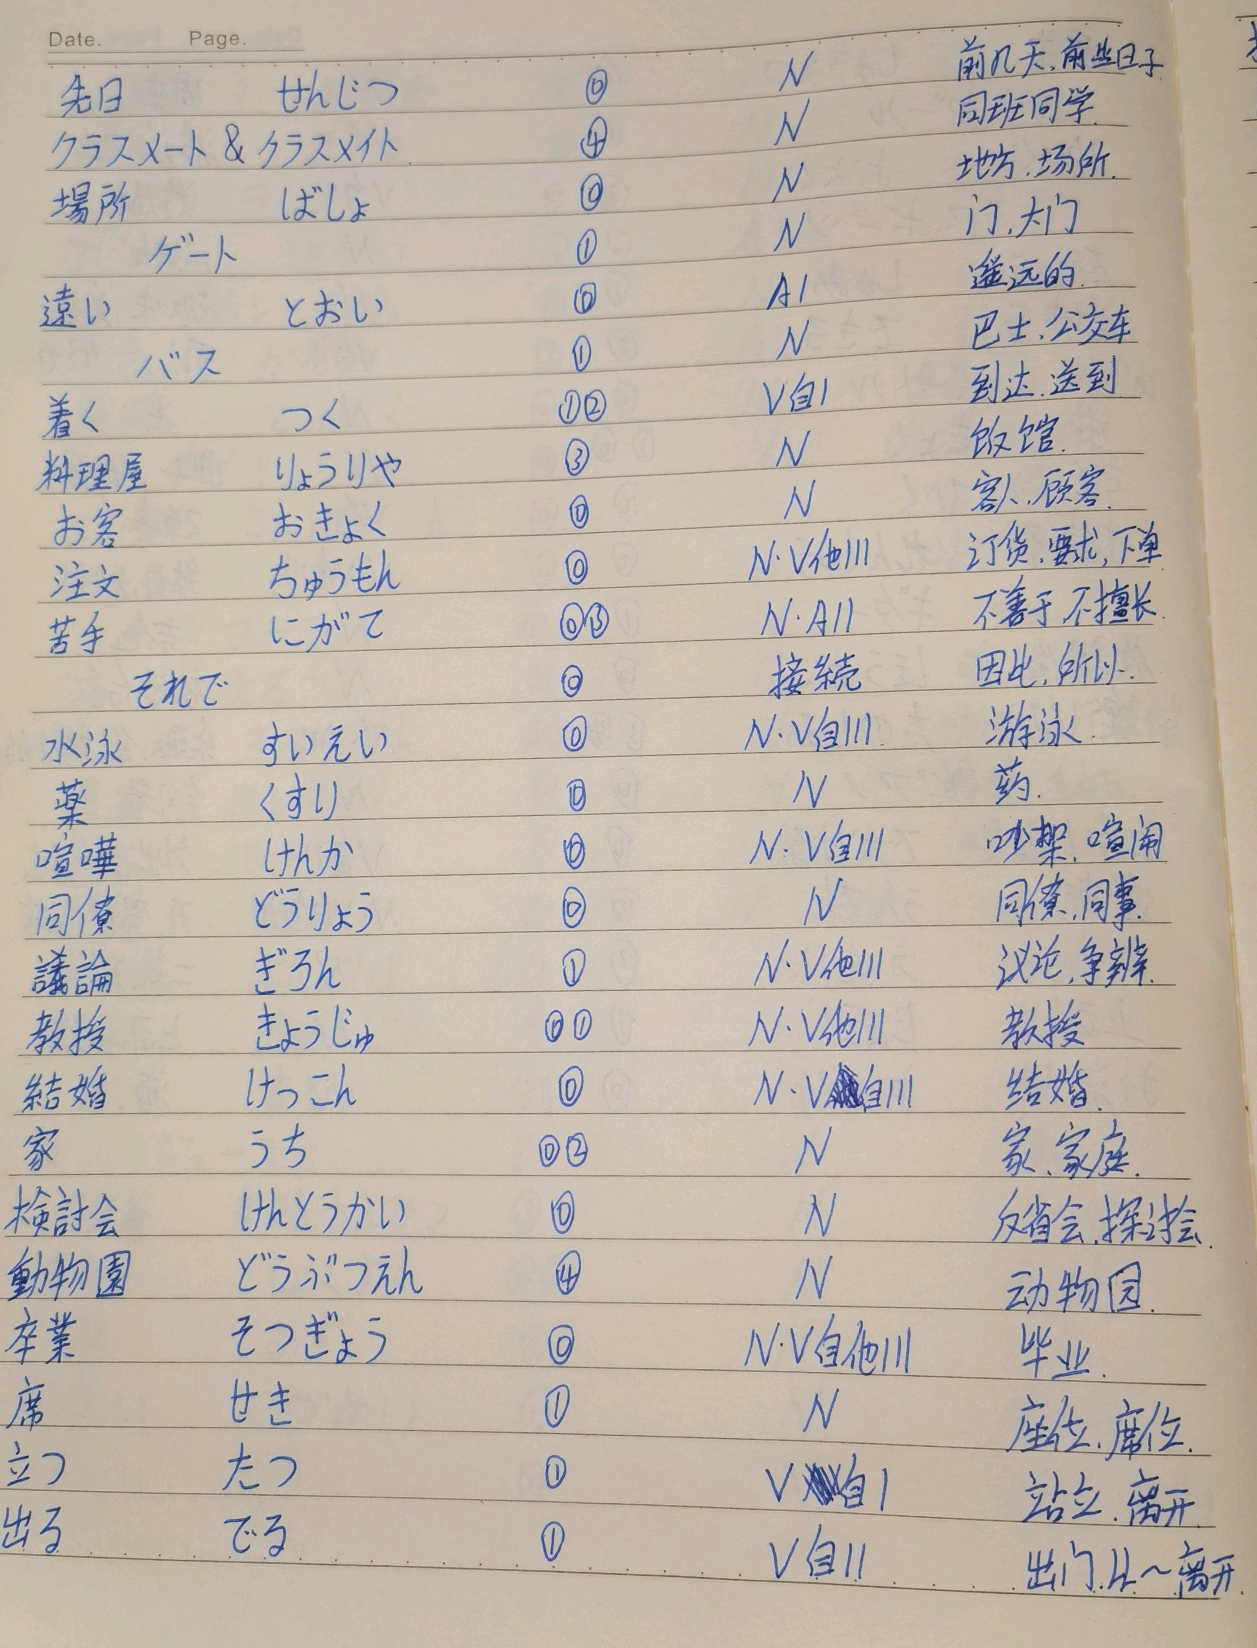 Date. Page.
先日 せんじつ ⓪ N 前几天、前些日子
クラスメート & クラスメイト ④ N 同班同学.
場所 ばしょ ⓪ N 地方.场所.
ゲート ① N 门,大门
遠い とおい ⓪ AI 遥远的.
バス ① N 巴士.公交车
着く つく ①② V自I 到达.送到
料理屋 りょうりや ③ N 饭馆.
お客 おきょく ⓪ N 客人、顾客.
注文 ちゅうもん ⓪ N·V他III 订货.要求,下单
苦手 にがて ⓪③ N·AII 不善于 不擅长.
それで ⓪ 接続 因此,所以.
水泳 すいえい ⓪ N·V自III 游泳.
薬 くすり ⓪ N 药.
喧嘩 けんか ⓪ N·V自III 吵架,喧闹
同僚 どうりょう ⓪ N 同僚,同事.
議論 ぎろん ① N·V他III 议论,争辨.
教授 きょうじゅ ⓪① N·V他III 教授
結婚 けっこん ⓪ N·V自III 结婚.
家 うち ⓪② N 家、家庭.
検討会 けんとうかい ⓪ N 反省会,探讨会.
動物園 どうぶつえん ④ N 动物园.
卒業 そつぎょう ⓪ N·V自他III 毕业.
席 せき ① N 座位、席位.
立つ たつ ① V自I 站立、离开
出る でる ① V自II 出门.从~离开.